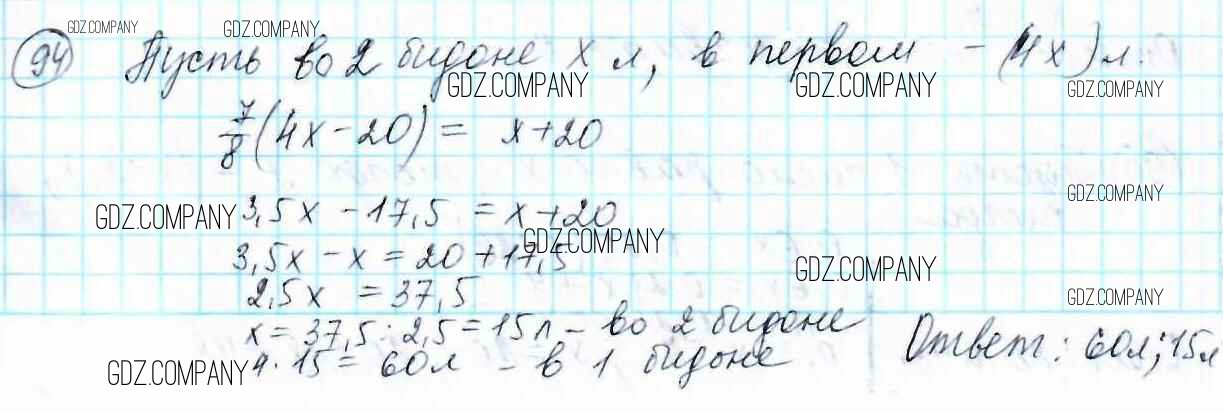 GDZ.COMPANY GDZ.COMPANY
94 Пусть во 2 бидоне x л, в первом - (4x) л.
GDZ.COMPANY GDZ.COMPANY GDZ.COMPANY
7/8 (4x - 20) = x + 20
GDZ.COMPANY
GDZ.COMPANY 3,5x - 17,5 = x + 20
GDZ.COMPANY
3,5x - x = 20 + 17,5
GDZ.COMPANY
2,5x = 37,5
GDZ.COMPANY
x = 37,5 : 2,5 = 15 л - во 2 бидоне
GDZ.COMPANY 4 · 15 = 60 л - в 1 бидоне
Ответ: 60 л; 15 л